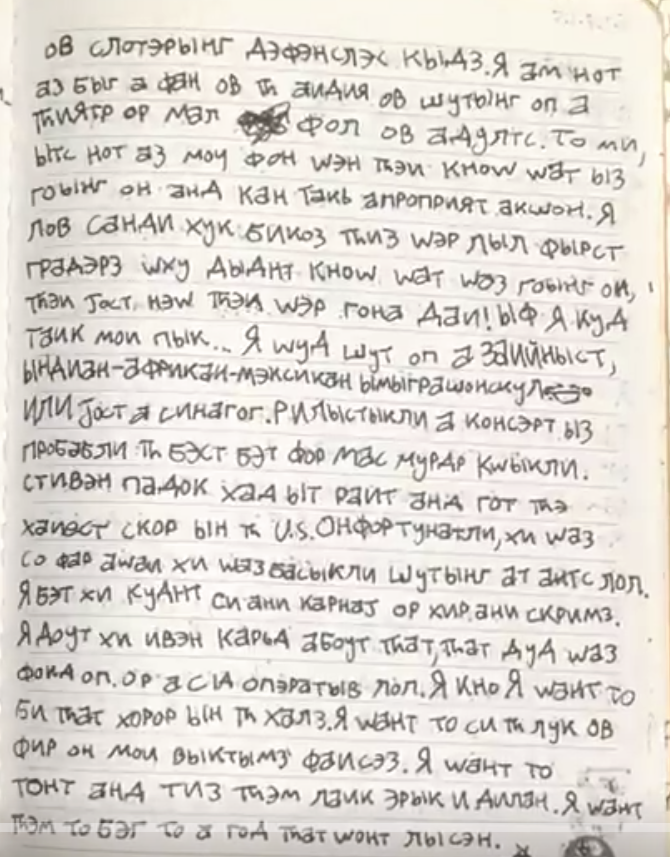 ОВ СЛОТЭРЫНГ ДЭФЭНСЛЭС КЫДЗ. Я ам НОТ
аЗ БЫГ а фаН ОВ Th аИДИЯ ОВ ШУТЫНГ ОП а
ThИЯТР ОР МаЛ ФОЛ ОВ аДУЛТС. ТО МИ,
ЫТС НОТ аЗ МОЧ ФОН WЭН ThЭИ KNOW WaT ЫЗ
ГОЫНГ ОН аНД КаН ТаКЬ аПРОПРИЯТ аКШОН. Я
ЛОВ СаНДИ ХУК БИКОЗ ThИЗ WЭР ЛЫЛ ФЫРСТ
ГРаДЭРЗ WХУ ДЫДНТ KNOW WaT WaЗ ГОЫНГ ОН,
ThЭИ JОСТ НЭW ThЭИ WЭР ГОНа ДаИ! ЫФ Я КУД
ТаИК МОИ ПЫК... Я ШУД ШУТ ОП а ЗаИЙНЫСТ,
ЫНДИаН-аФРИКаН-МЭКСИКаН ЫМЫГРаШОНСКУЛ
ИЛИ JОСТ а СИНаГОГ. РИЛЫСТЫКЛИ а КОНСЭРТ ЫЗ
ПРОБаБЛИ Th БЭСТ БЭТ ФОР МаС МУРДР КWЫКЛИ.
СТИВЭН ПаДОК ХаД ЫТ РаИТ аНД ГОТ ThЭ
ХаИЭСТ СКОР ЫН Th U.S. ОНФОРТУНаТЛИ, ХИ WaЗ
СО ФаР аWaИ ХИ WaЗ БаСЫКЛИ ШУТЫНГ аТ аНТС ЛОЛ.
Я БЭТ ХИ КУДНТ СИ аНИ КаРНаJ ОР ХИР аНИ СКРИМЗ.
Я ДОУТ ХИ ИВЭН КаРЬД аБОУТ ThaT, ThaT ДУД WaЗ
ФОКД ОП. ОР а CIA ОПЭРаТЫВ ЛОЛ. Я KNO Я WaНТ ТО
БИ ThaT ХОРОР ЫН Th ХаЛЗ. Я WaНТ ТО СИ Th ЛУК ОВ
ФИР ОН МОИ ВЫКТЫМЗ ФаИСЭЗ. Я WaНТ ТО
ТОНТ аНД ТИЗ ThЭМ ЛаИК ЭРЫК И ДИЛаН. Я WaНТ
ThЭМ ТО БЭГ ТО а ГОД ThaT WОНТ ЛЫСЭН.